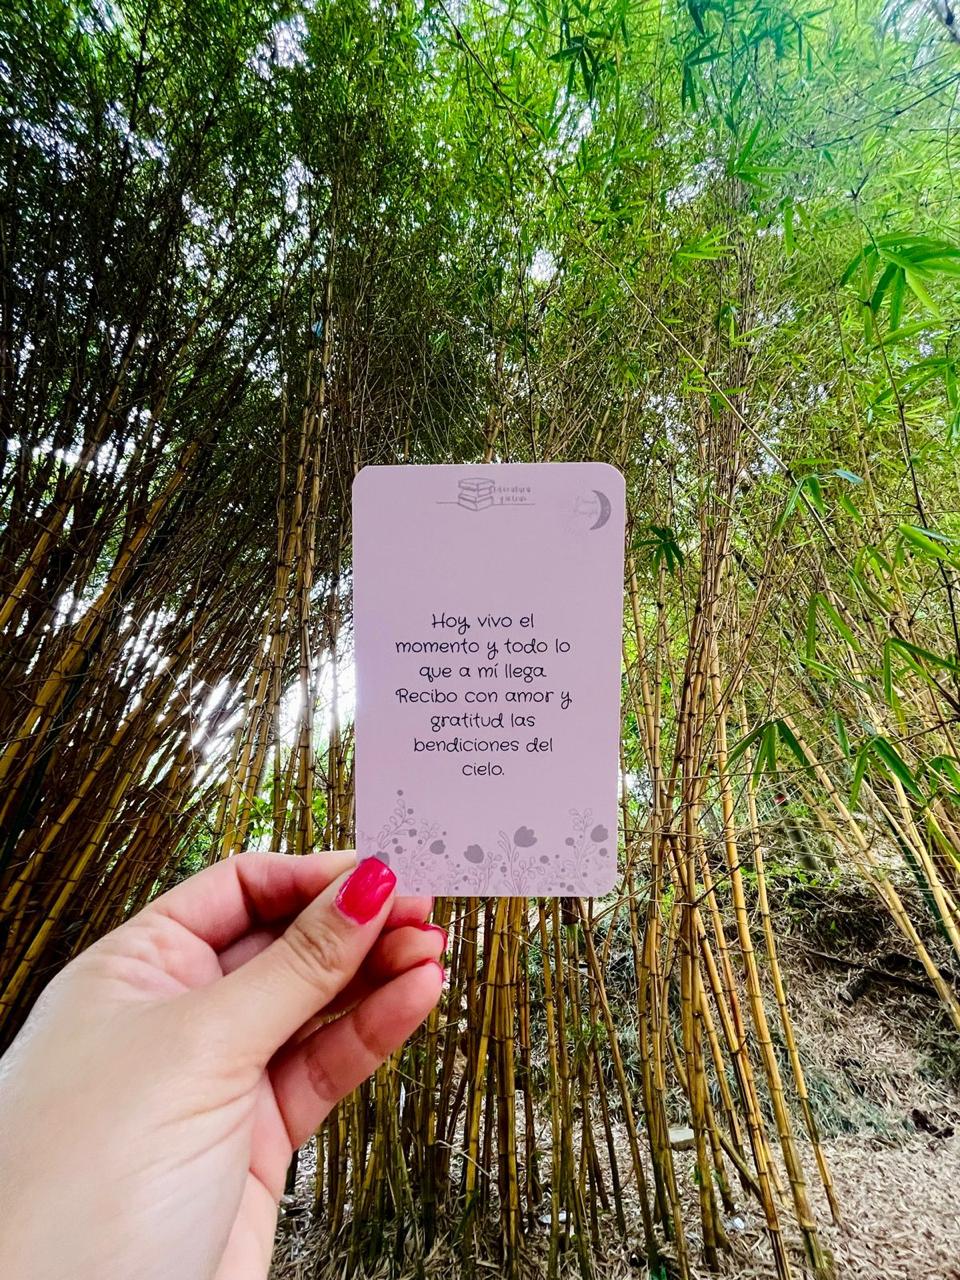 Hoy, vivo el
momento y todo lo
que a mí llega
Recibo con amor y
gratitud las
bendiciones del
cielo.